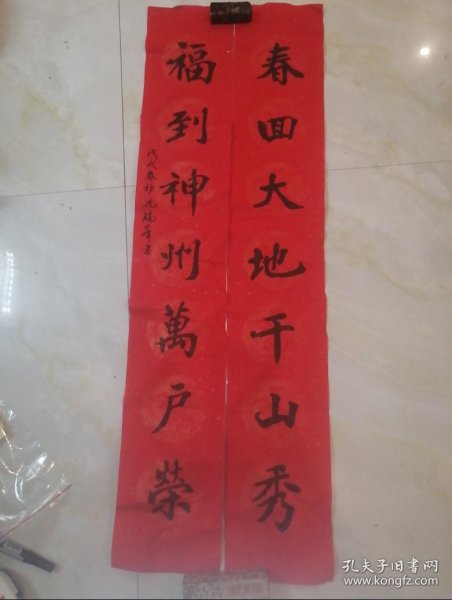 春回大地千山秀
福到神州萬户榮
戊戌春初
孔夫子旧书网
www.kongfz.com